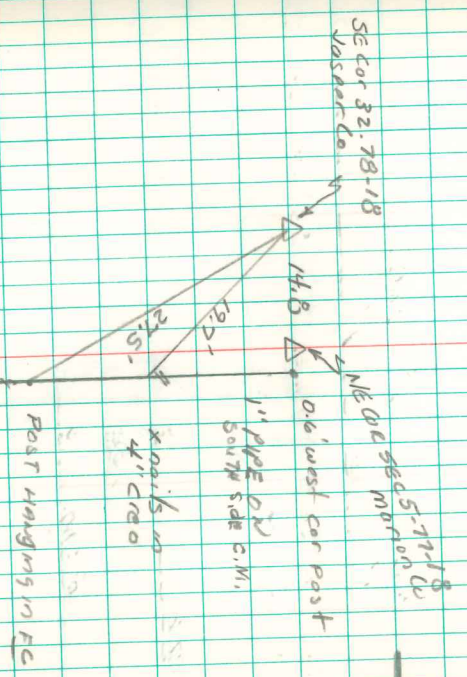 SE Cor 32-78-18
Jasper Co
NE COR SEC 5-77-18
Marion Co
14.8
0.6' west cor post
1" PIPE ON
South side C.M.
19.7-
27.5-
x nails in
4" Creo
Post Hanging in FC